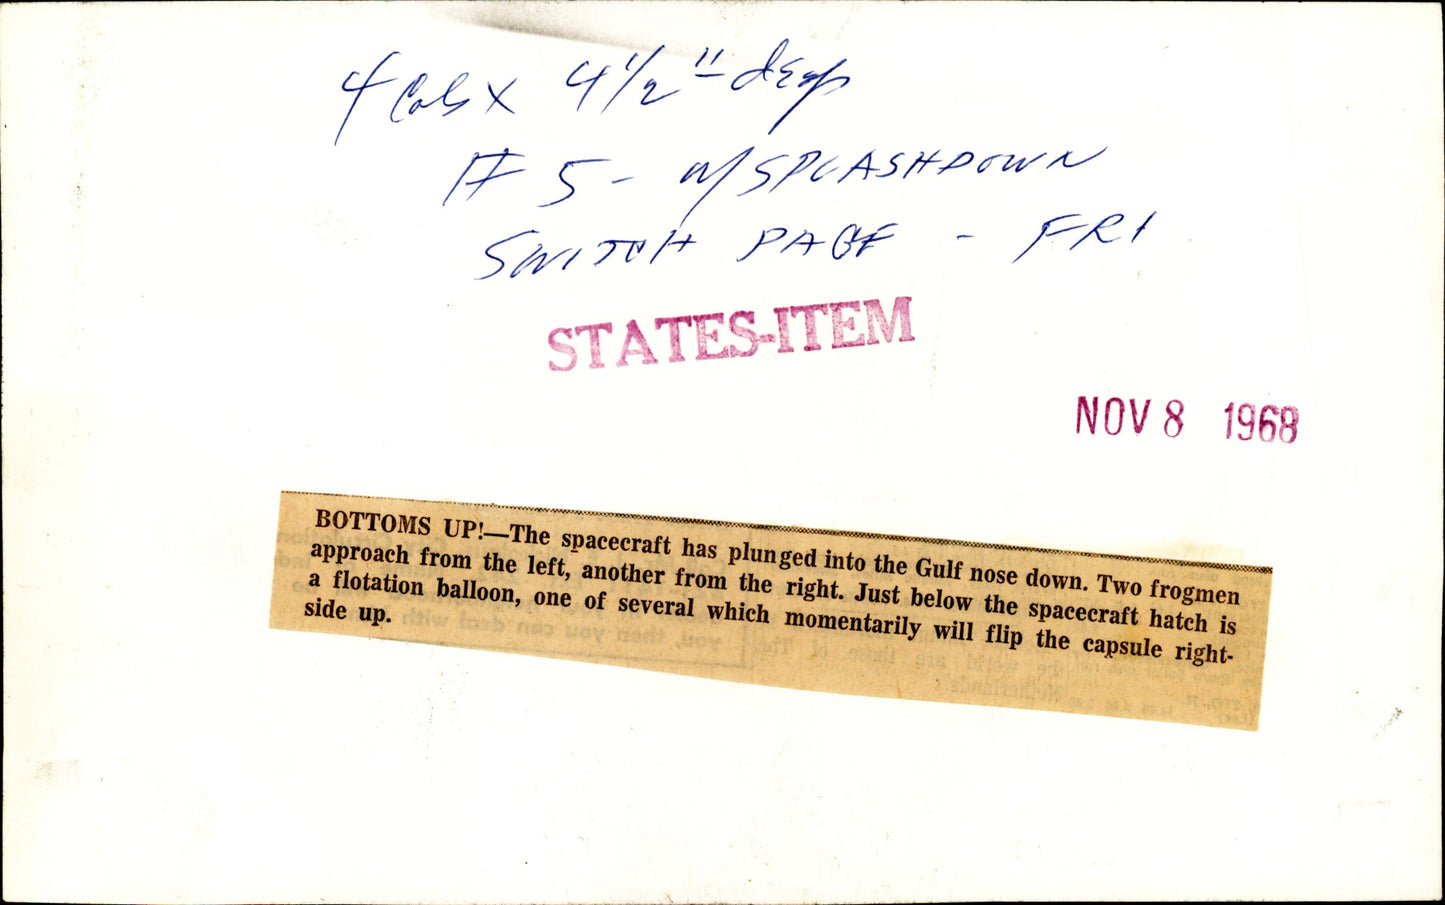 4 Cols x 4 1/2" deep
# 5 - w/ SPLASHDOWN
SWITCH PAGE - FRI
STATES-ITEM
NOV 8 1968
BOTTOMS UP!—The spacecraft has plunged into the Gulf nose down. Two frogmen
approach from the left, another from the right. Just below the spacecraft hatch is
a flotation balloon, one of several which momentarily will flip the capsule right-
side up.